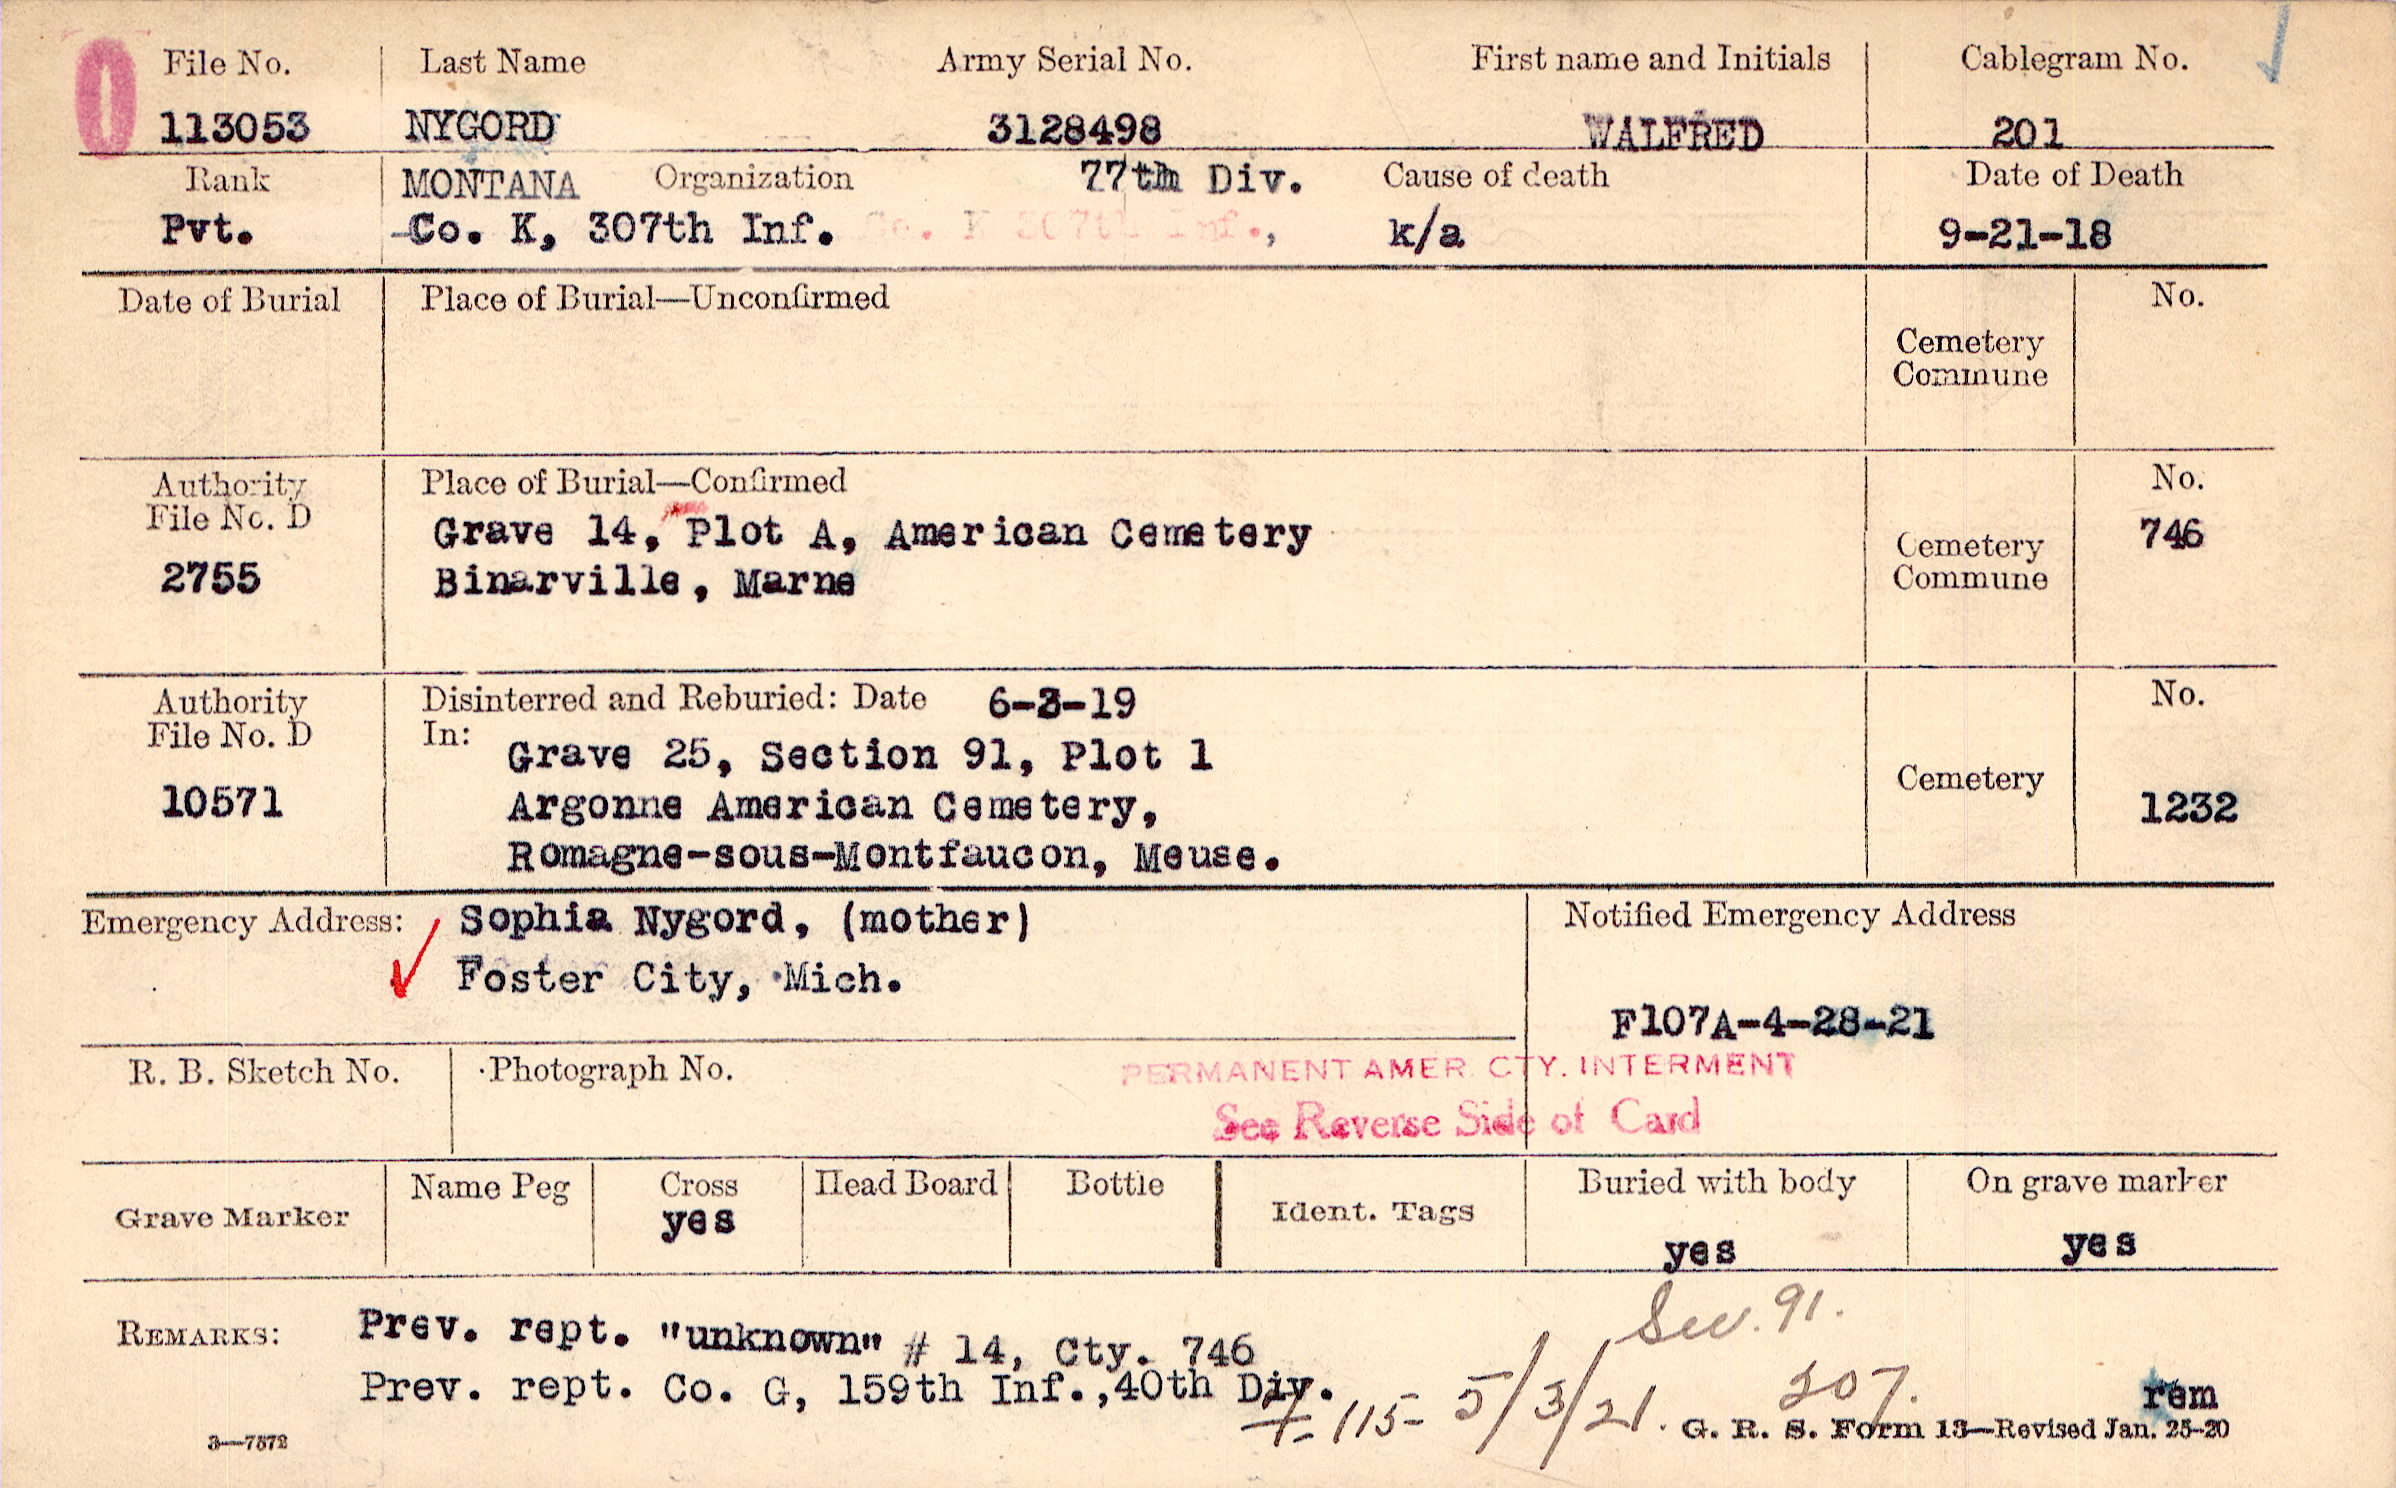 File No. Last Name Army Serial No. First name and Initials Cablegram No.
113053 NYGORD 3128498 WALFRED 201
Rank MONTANA Organization 77th Div. Cause of death Date of Death
Pvt. Co. K, 307th Inf. k/a 9-21-18
Date of Burial Place of Burial—Unconfirmed No.
Cemetery
Commune
Authority Place of Burial—Confirmed No.
File No. D Grave 14, Plot A, American Cemetery 746
2755 Binarville, Marne Cemetery
Commune
Authority Disinterred and Reburied: Date 6-3-19 No.
File No. D In:
Grave 25, Section 91, Plot 1
Cemetery
10571 Argonne American Cemetery, 1232
Romagne-sous-Montfaucon, Meuse.
Emergency Address: Sophia Nygord, (mother) Notified Emergency Address
Foster City, Mich.
F107A-4-28-21
R. B. Sketch No. Photograph No. PERMANENT AMER. CTY. INTERMENT
See Reverse Side of Card
Name Peg Cross Head Board Bottle Buried with body On grave marker
Grave Marker yes Ident. Tags yes yes
Sec. 91.
REMARKS: Prev. rept. "unknown" # 14, Cty. 746
Prev. rept. Co. G, 159th Inf.,40th Div. 307. rem
115- 5/3/21.
3—7572 G. R. S. Form 13—Revised Jan. 25-20